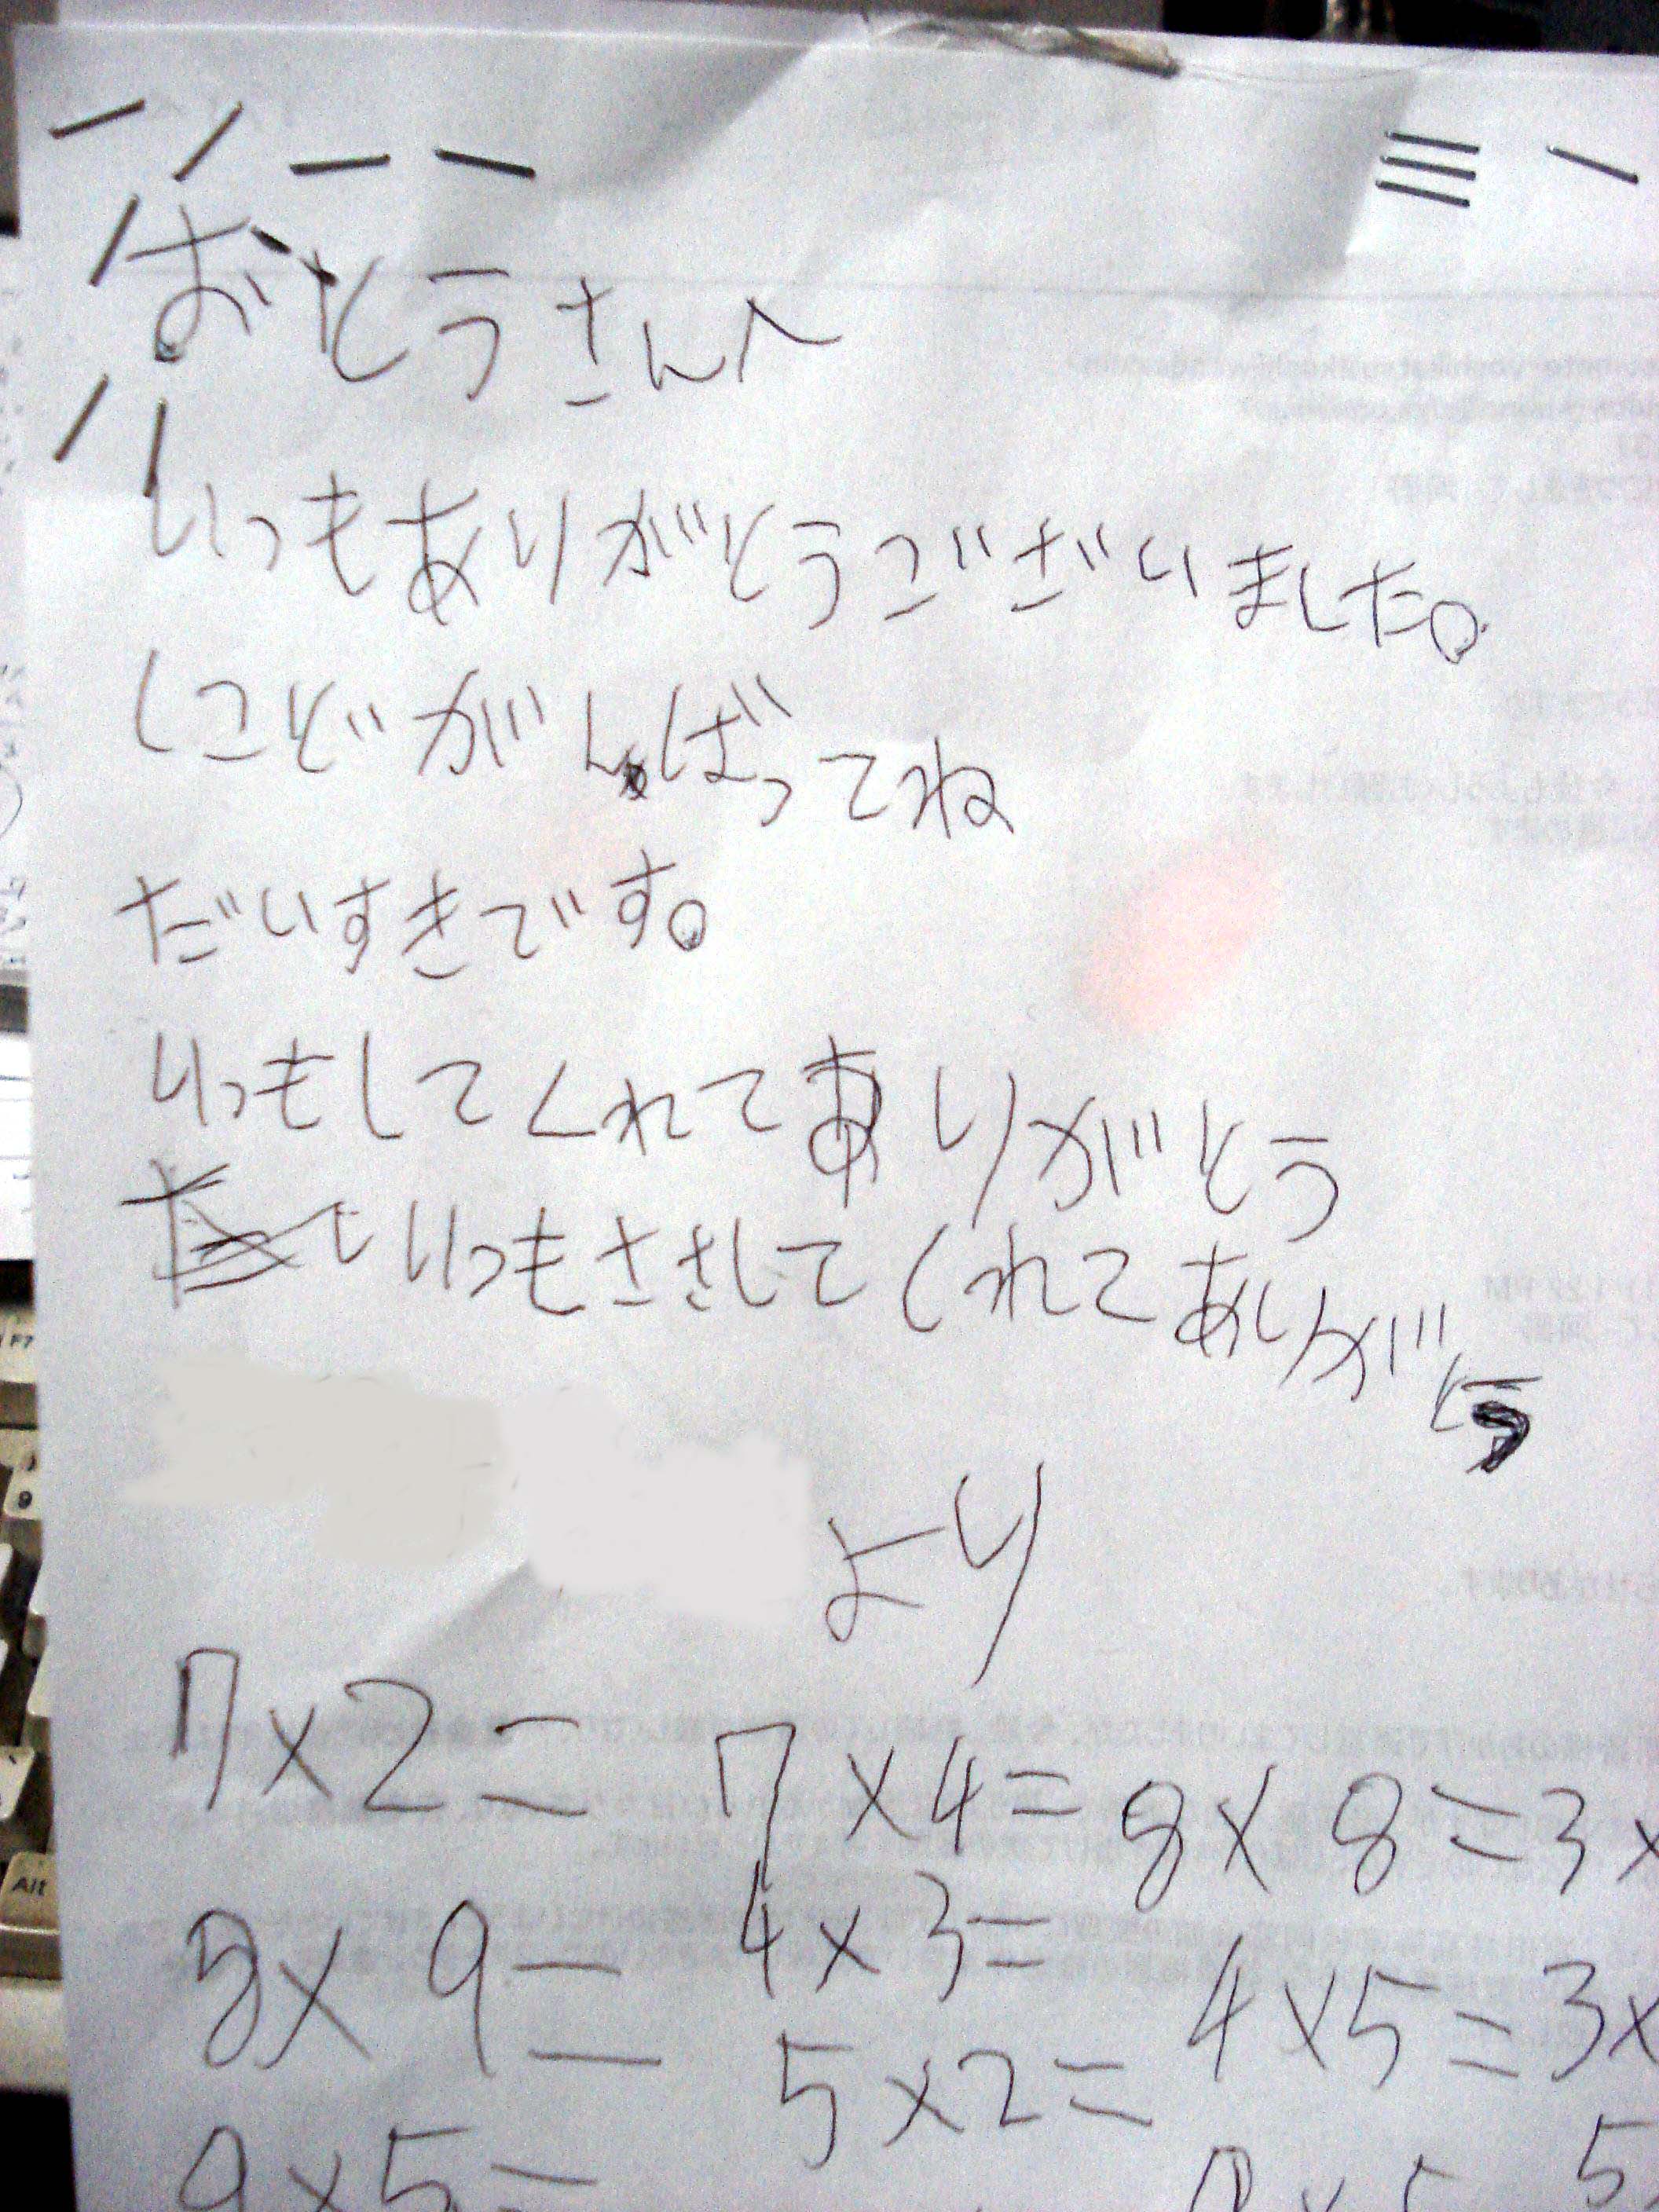 おとうさんへ
いつもありがとうございました。
しごどがんばってね
だいすきです。
いつもしてくれてありがとう
いつもささしてくれてありがとう
より
7×2= 7×4= 8×8=3×
8×9= 4×3= 4×5=3×
5×2=
9×5=
F7
9
Alt